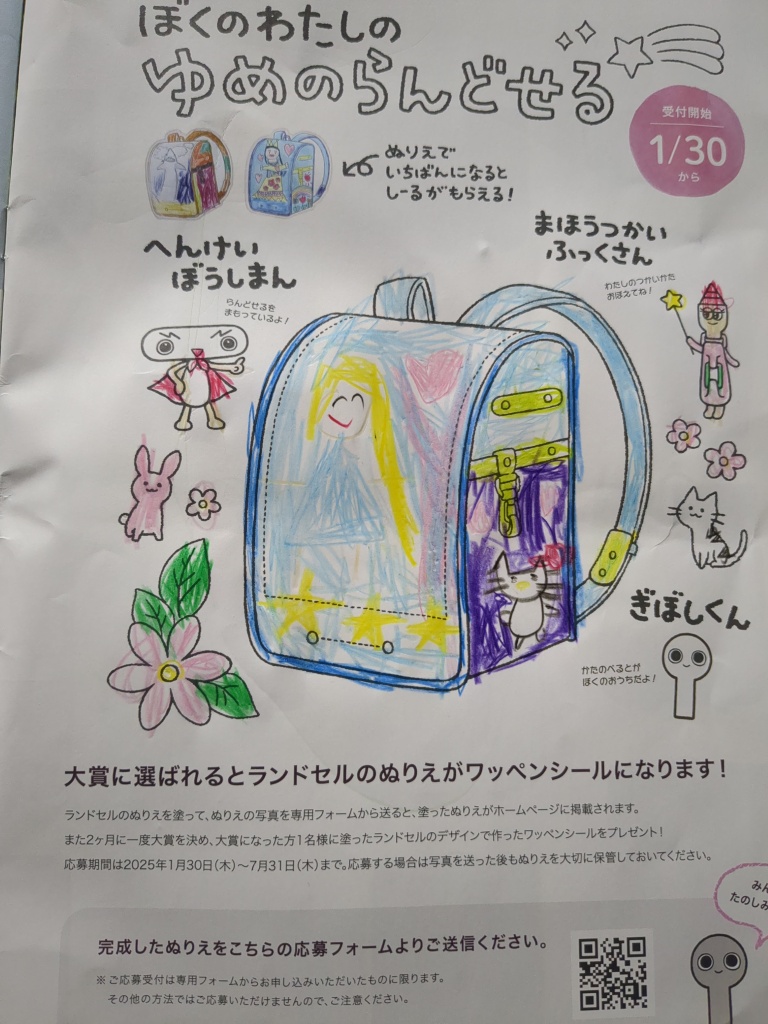 ぼくのわたしの
ゆめのらんどせる
受付開始
1/30
から
ぬりえで
いちばんになると
しーるがもらえる!
へんけい
ぼうしまん
らんどせるを
まもっているよ!
まほうつかい
ふっくさん
わたしのつかいかた
おぼえてね!
ぎぼしくん
かたのべるとが
ぼくのおうちだよ!
大賞に選ばれるとランドセルのぬりえがワッペンシールになります!
ランドセルのぬりえを塗って、ぬりえの写真を専用フォームから送ると、塗ったぬりえがホームページに掲載されます。
また2ヶ月に一度大賞を決め、大賞になった方1名様に塗ったランドセルのデザインで作ったワッペンシールをプレゼント!
応募期間は2025年1月30日(木)〜7月31日(木)まで。応募する場合は写真を送った後もぬりえを大切に保管しておいてください。
完成したぬりえをこちらの応募フォームよりご送信ください。
※ご応募受付は専用フォームからお申し込みいただいたものに限ります。
その他の方法ではご応募いただけませんので、ご注意ください。
みん
たのしみ